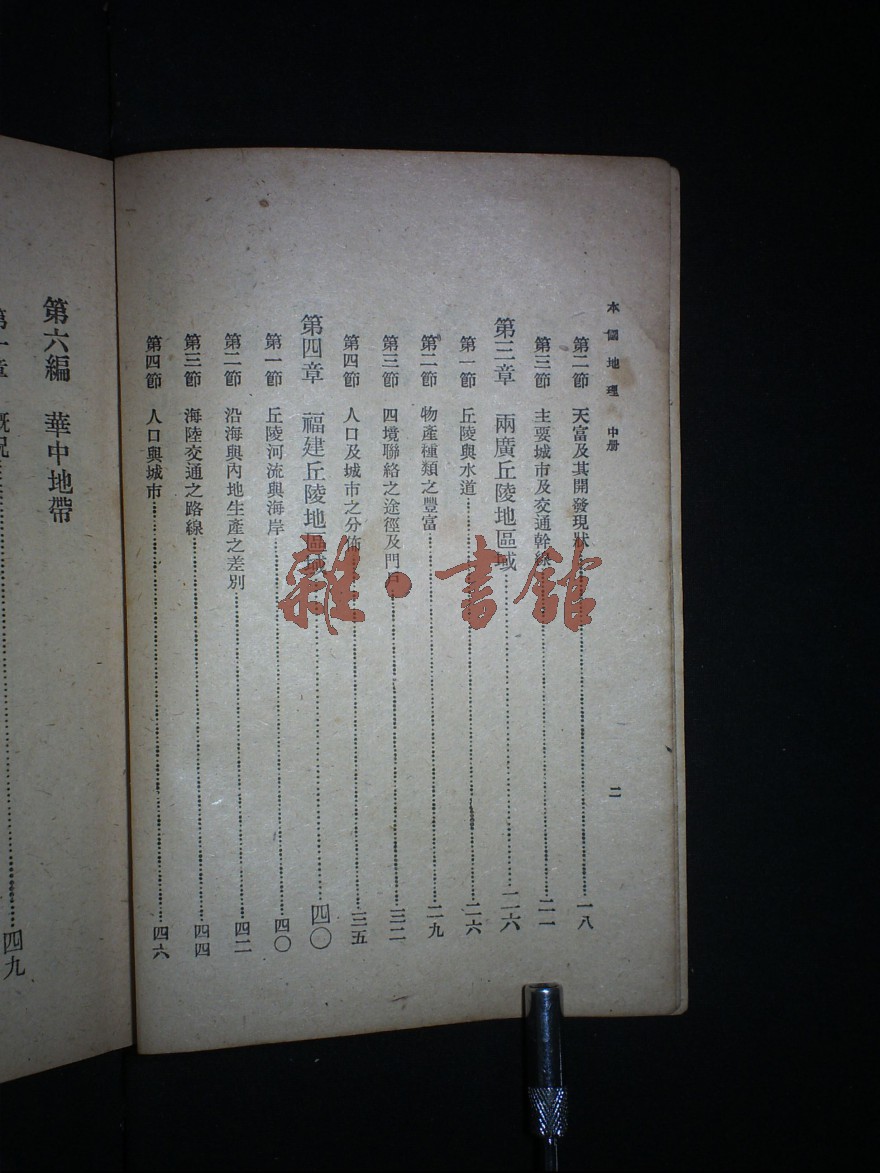 本國地理 中册
二
第二節 天富及其開發現狀 一八
第三節 主要城市及交通幹線 二一
第三章 兩廣丘陵地區域 二六
第一節 丘陵與水道 二六
第二節 物產種類之豐富 二九
第三節 四境聯絡之途徑及門戶 三二
第四節 人口及城市之分佈 三五
第四章 福建丘陵地區域 四〇
第一節 丘陵河流與海岸 四〇
第二節 沿海與內地生產之差別 四二
第三節 海陸交通之路線 四四
第四節 人口與城市 四六
第六編 華中地帶
第一章 概況 四九
雜·書館